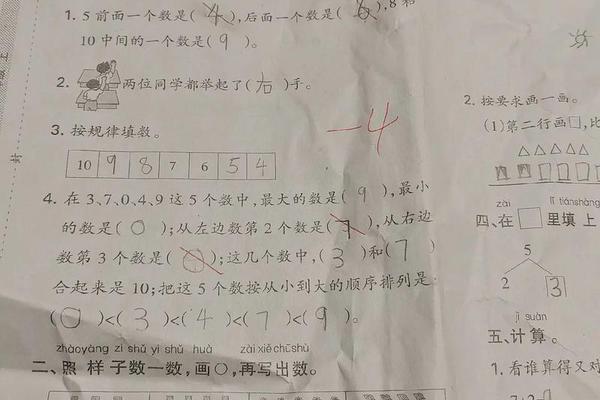 1. 5 前面一个数是( 4 ), 后面一个数是( 6 ), 8 和
10 中间的一个数是( 9 )。
2. 两位同学都举起了(右)手。
3. 按规律填数。
10 9 8 7 6 5 4
-4
4. 在 3、7、0、4、9 这 5 个数中, 最大的数是( 9 ), 最小
的数是( 0 ); 从左边数第 2 个数是( 7 ), 从右边
数第 3 个数是( 0 ); 这几个数中, ( 3 )和( 7 )
合起来是 10; 把这 5 个数按从小到大的顺序排列是:
( 0 )<( 3 )<( 4 )<( 7 )<( 9 )。
zhàoyàng zi shǔ yi shǔ huà zài xiě chū shù
二、照 样 子数一数, 画○, 再写出数。
2. 按要求画一画。
(1) 第二行画□, 比
△△△△△
zài lǐ tiánshàng
四、在 □ 里填 上
5
2 3
jì suàn
五、计算。
1. 看谁算得又对